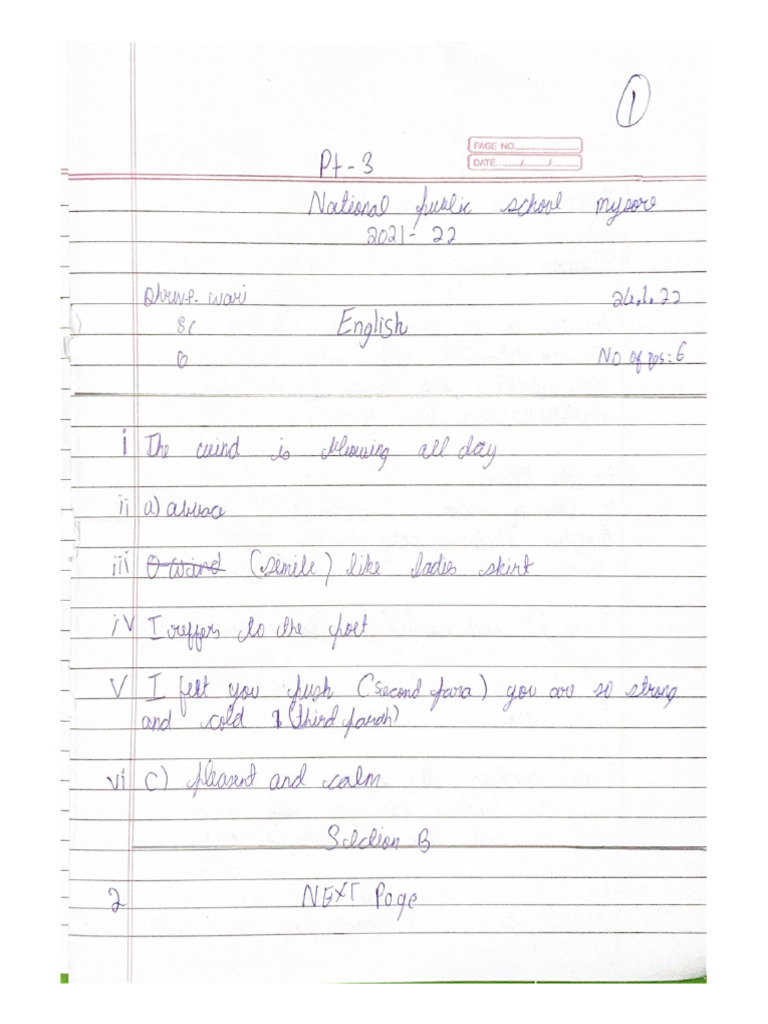 1
PAGE NO.
DATE
Pt-3
National public school mysore
2021-22
24.1.22
8C English
6 No of pgs: 6
i The wind is blowing all day
ii a) abbaa
iii O wind (simile) like ladies skirt
iv I reffers to the poet
v I felt you push (second para) you are so strong
and cold (third parah)
vi c) pleasent and calm
Section B
2 NEXT Page